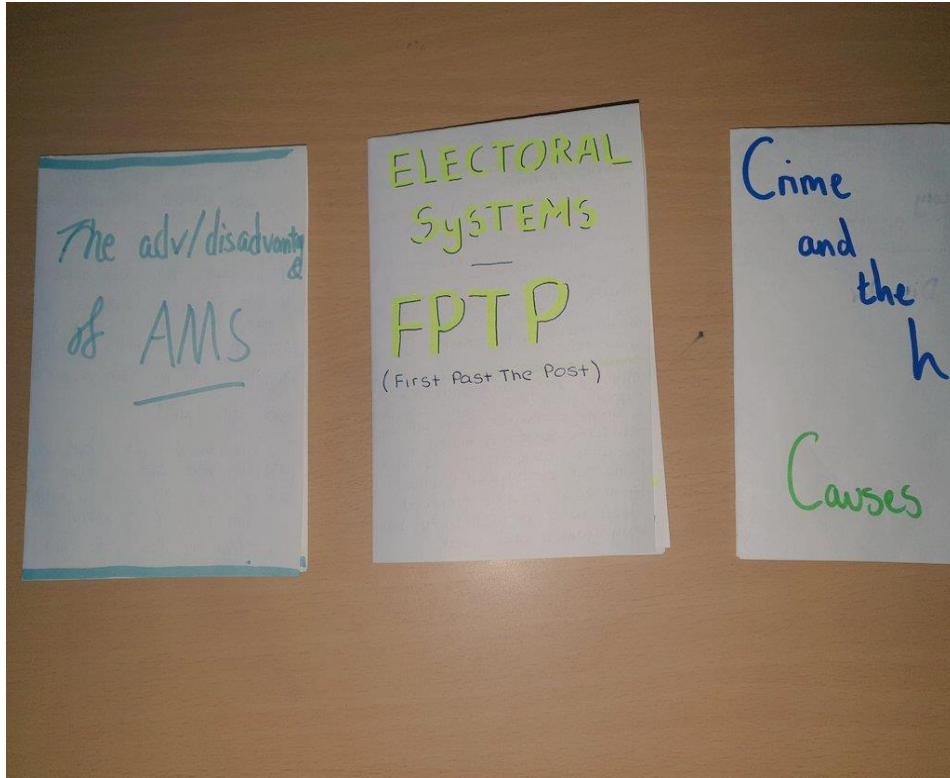 The adv/disadvantag
&
of AMS
ELECTORAL
SYSTEMS
FPTP
(First Past The Post)
Crime
and
the
h
Causes